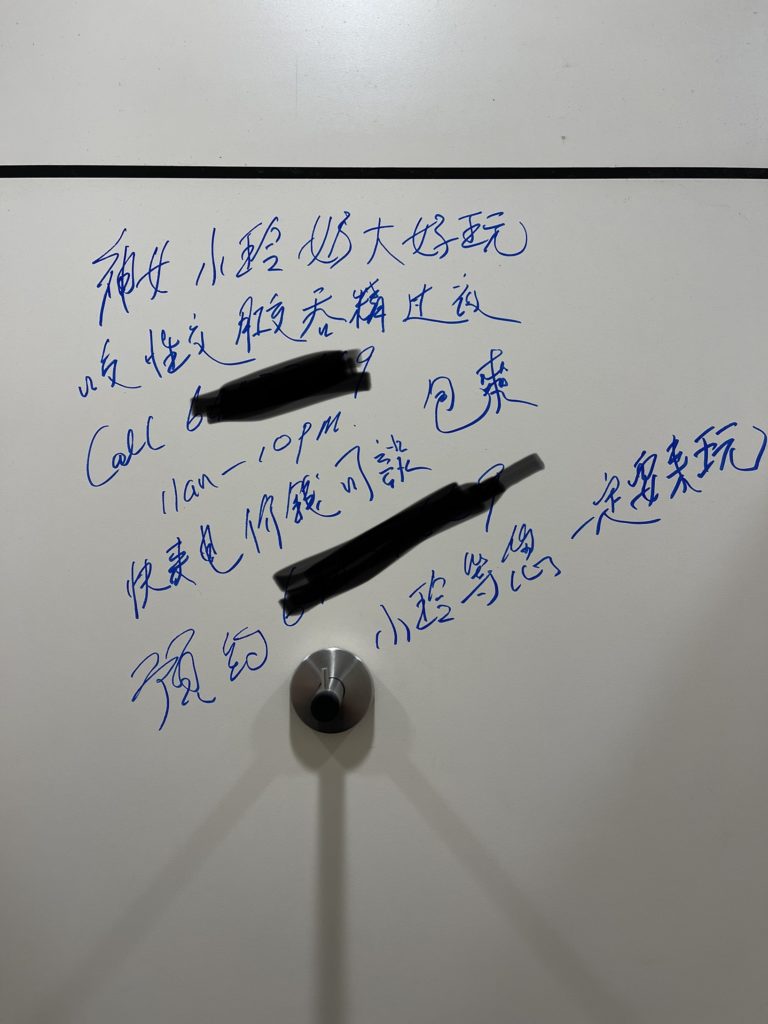 神女小玲奶大好玩
口交性交肛交吞精过夜
Call 6 9
11am-10pm. 包爽
快来电价錢可談
預约 6 9 小玲等您一定要来玩